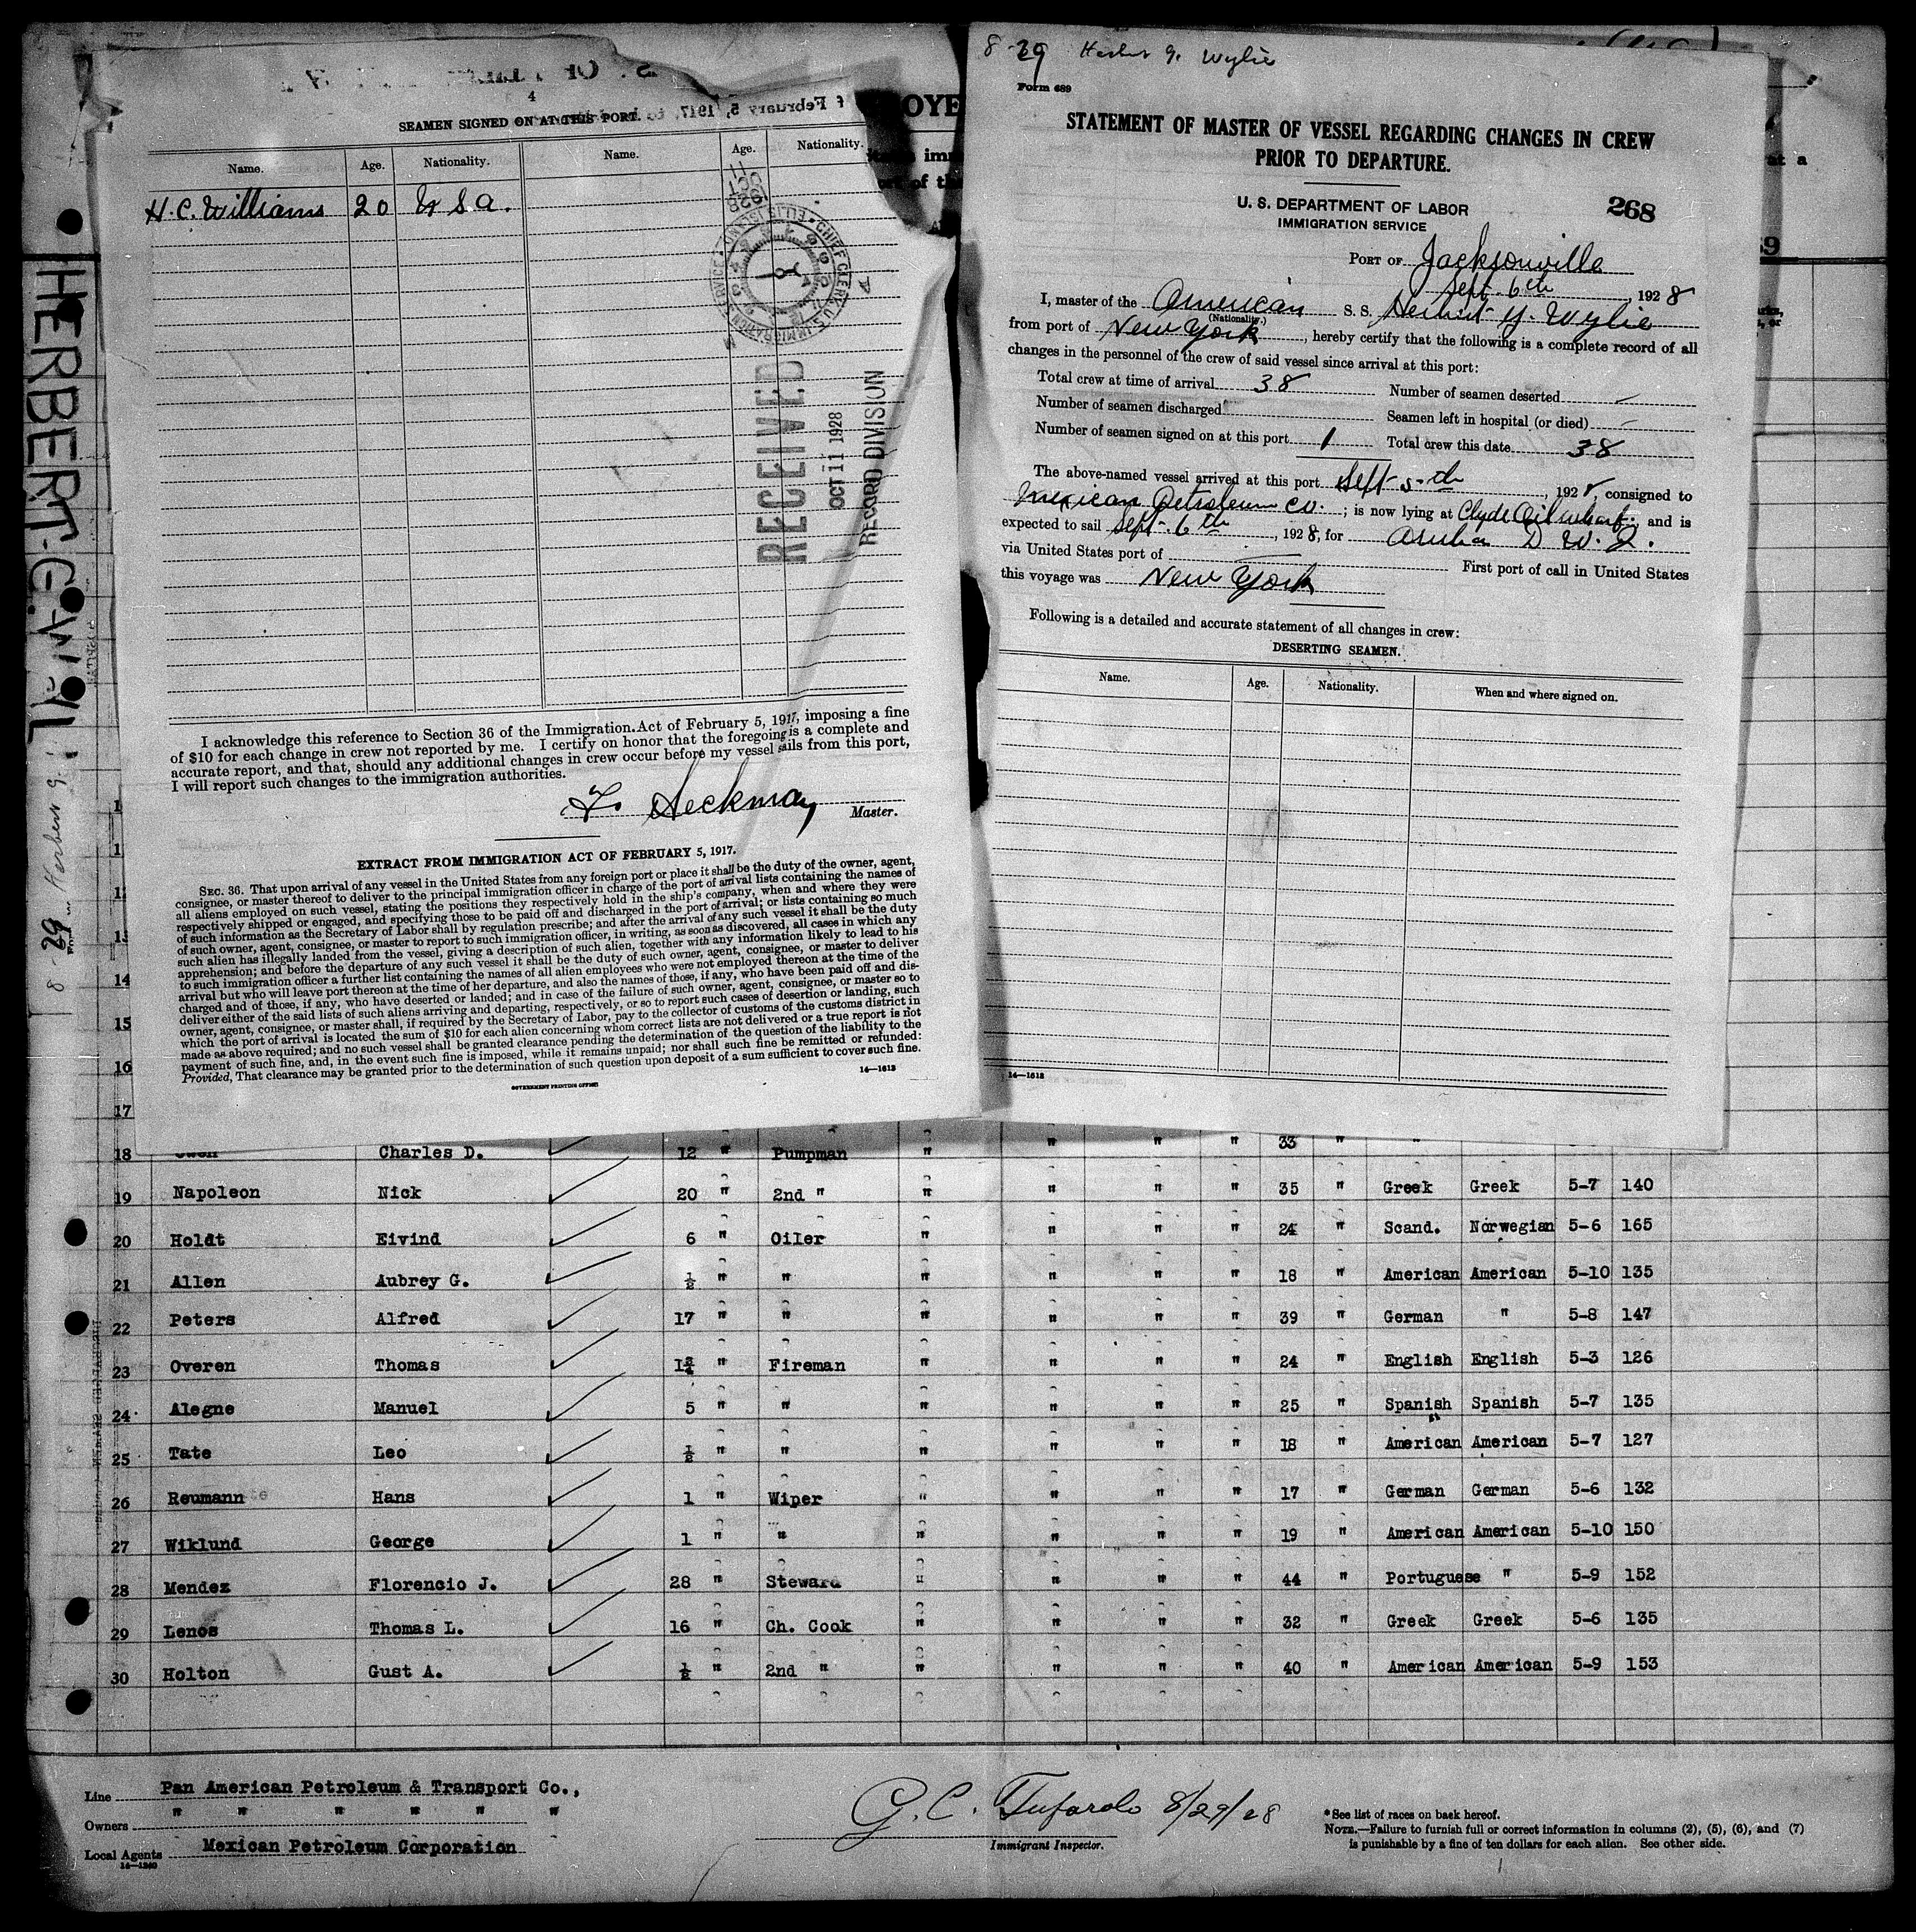 SEAMEN SIGNED ON AT THIS PORT.
Name. Age. Nationality. Name. Age. Nationality.
H.C. Williams 20 U S A.
1928 OCT 11
CHIEF CLERK, U.S. IMMIGRATION SERVICE ELLIS ISLAND
RECEIVED
OCT 11 1928
RECORD DIVISION
I acknowledge this reference to Section 36 of the Immigration Act of February 5, 1917, imposing a fine
of $10 for each change in crew not reported by me. I certify on honor that the foregoing is a complete and
accurate report, and that, should any additional changes in crew occur before my vessel sails from this port,
I will report such changes to the immigration authorities.
Master.
EXTRACT FROM IMMIGRATION ACT OF FEBRUARY 5, 1917.
SEC. 36. That upon arrival of any vessel in the United States from any foreign port or place it shall be the duty of the owner, agent,
consignee, or master thereof to deliver to the principal immigration officer in charge of the port of arrival lists containing the names of
all aliens employed on such vessel, stating the positions they respectively hold in the ship's company, when and where they were
respectively shipped or engaged, and specifying those to be paid off and discharged in the port of arrival; or lists containing so much
of such information as the Secretary of Labor shall by regulation prescribe; and after the arrival of any such vessel it shall be the duty
of such owner, agent, consignee, or master to report to such immigration officer, in writing, as soon as discovered, all cases in which any
such alien has illegally landed from the vessel, giving a description of such alien, together with any information likely to lead to his
apprehension; and before the departure of any such vessel it shall be the duty of such owner, agent, consignee, or master to deliver
to such immigration officer a further list containing the names of all alien employees who were not employed thereon at the time of the
arrival but who will leave port thereon at the time of her departure, and also the names of those, if any, who have been paid off and dis-
charged and of those, if any, who have deserted or landed; and in case of the failure of such owner, agent, consignee, or master so to
deliver either of the said lists of such aliens arriving and departing, respectively, or so to report such cases of desertion or landing, such
owner, agent, consignee, or master shall, if required by the Secretary of Labor, pay to the collector of customs of the customs district in
which the port of arrival is located the sum of $10 for each alien concerning whom correct lists are not delivered or a true report is not
made as above required; and no such vessel shall be granted clearance pending the determination of the question of the liability to the
payment of such fine, and, in the event such fine is imposed, while it remains unpaid; nor shall such fine be remitted or refunded:
Provided, That clearance may be granted prior to the determination of such question upon deposit of a sum sufficient to cover such fine.
14—1613
GOVERNMENT PRINTING OFFICE
HERBERT G. WYL
8-29 Herbert G. Wylie
Form 689
STATEMENT OF MASTER OF VESSEL REGARDING CHANGES IN CREW
PRIOR TO DEPARTURE.
U. S. DEPARTMENT OF LABOR
IMMIGRATION SERVICE
268
PORT OF Jacksonville
Sept 6th, 1928
I, master of the American S. S. Herbert G. Wylie
(Nationality.)
from port of New York, hereby certify that the following is a complete record of all
changes in the personnel of the crew of said vessel since arrival at this port:
Total crew at time of arrival 38 Number of seamen deserted —
Number of seamen discharged Seamen left in hospital (or died) —
Number of seamen signed on at this port 1 Total crew this date 38
The above-named vessel arrived at this port Sept 5-th, 1928, consigned to
Mexican Petroleum Co.; is now lying at Clyde Oil wharf; and is
expected to sail Sept. 6th, 1928, for Aruba D W. I.
via United States port of First port of call in United States
this voyage was New York
Following is a detailed and accurate statement of all changes in crew:
DESERTING SEAMEN.
Name. Age. Nationality. When and where signed on.
14—1613
18 Owen Charles D. 12 " Pumpman " " " " 33 "
19 Napoleon Nick 20 " 2nd " " " " " 35 " Greek Greek 5-7 140
20 Holdt Eivind 6 " Oiler " " " " 24 " Scand. Norwegian 5-6 165
21 Allen Aubrey G. ½ " " " " " " 18 " American American 5-10 135
22 Peters Alfred 17 " " " " " " 39 " German " 5-8 147
23 Overen Thomas 1¾ " Fireman " " " " 24 " English English 5-3 126
24 Alegne Manuel 5 " " " " " " 25 " Spanish Spanish 5-7 135
25 Tate Leo ½ " " " " " " 18 " American American 5-7 127
26 Reumann Hans 1 " Wiper " " " " 17 " German German 5-6 132
27 Wiklund George 1 " " " " " " 19 " American American 5-10 150
28 Mendez Florencio J. 28 " Steward " " " " 44 " Portuguese " 5-9 152
29 Lenos Thomas L. 16 " Ch. Cook " " " " 32 " Greek Greek 5-6 135
30 Holton Gust A. ½ " 2nd " " " " " 40 " American American 5-9 153
Line Pan American Petroleum & Transport Co.,
Owners " " " " " "
Local Agents Mexican Petroleum Corporation
14—1240
G. C. Tufardo 8/29/28
Immigrant Inspector.
*See list of races on back hereof.
NOTE.—Failure to furnish full or correct information in columns (2), (5), (6), and (7)
is punishable by a fine of ten dollars for each alien. See other side.